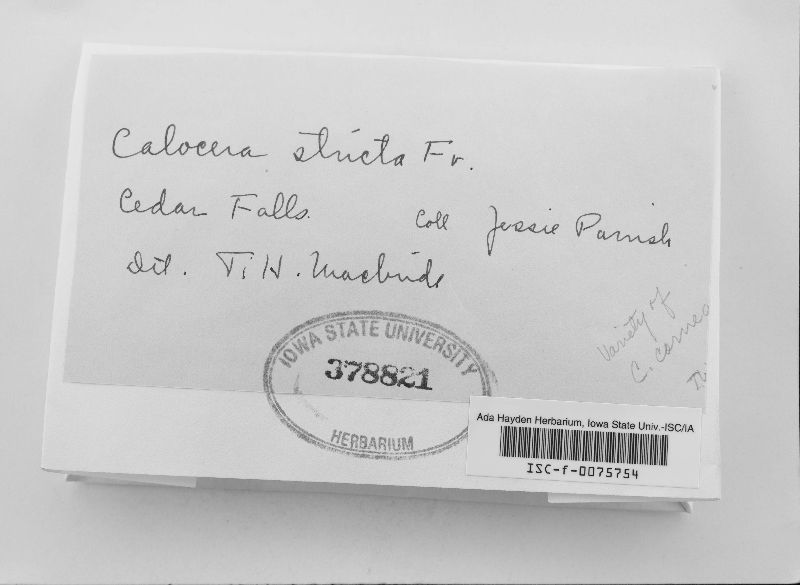 Calocera stricta Fr.
Cedar Falls. Coll Jessie Parrish
Det. T. H. Macbride
Variety of
C. cornea
IOWA STATE UNIVERSITY
378821
HERBARIUM
Ada Hayden Herbarium, Iowa State Univ.-ISC/IA
ISC-f-0075754